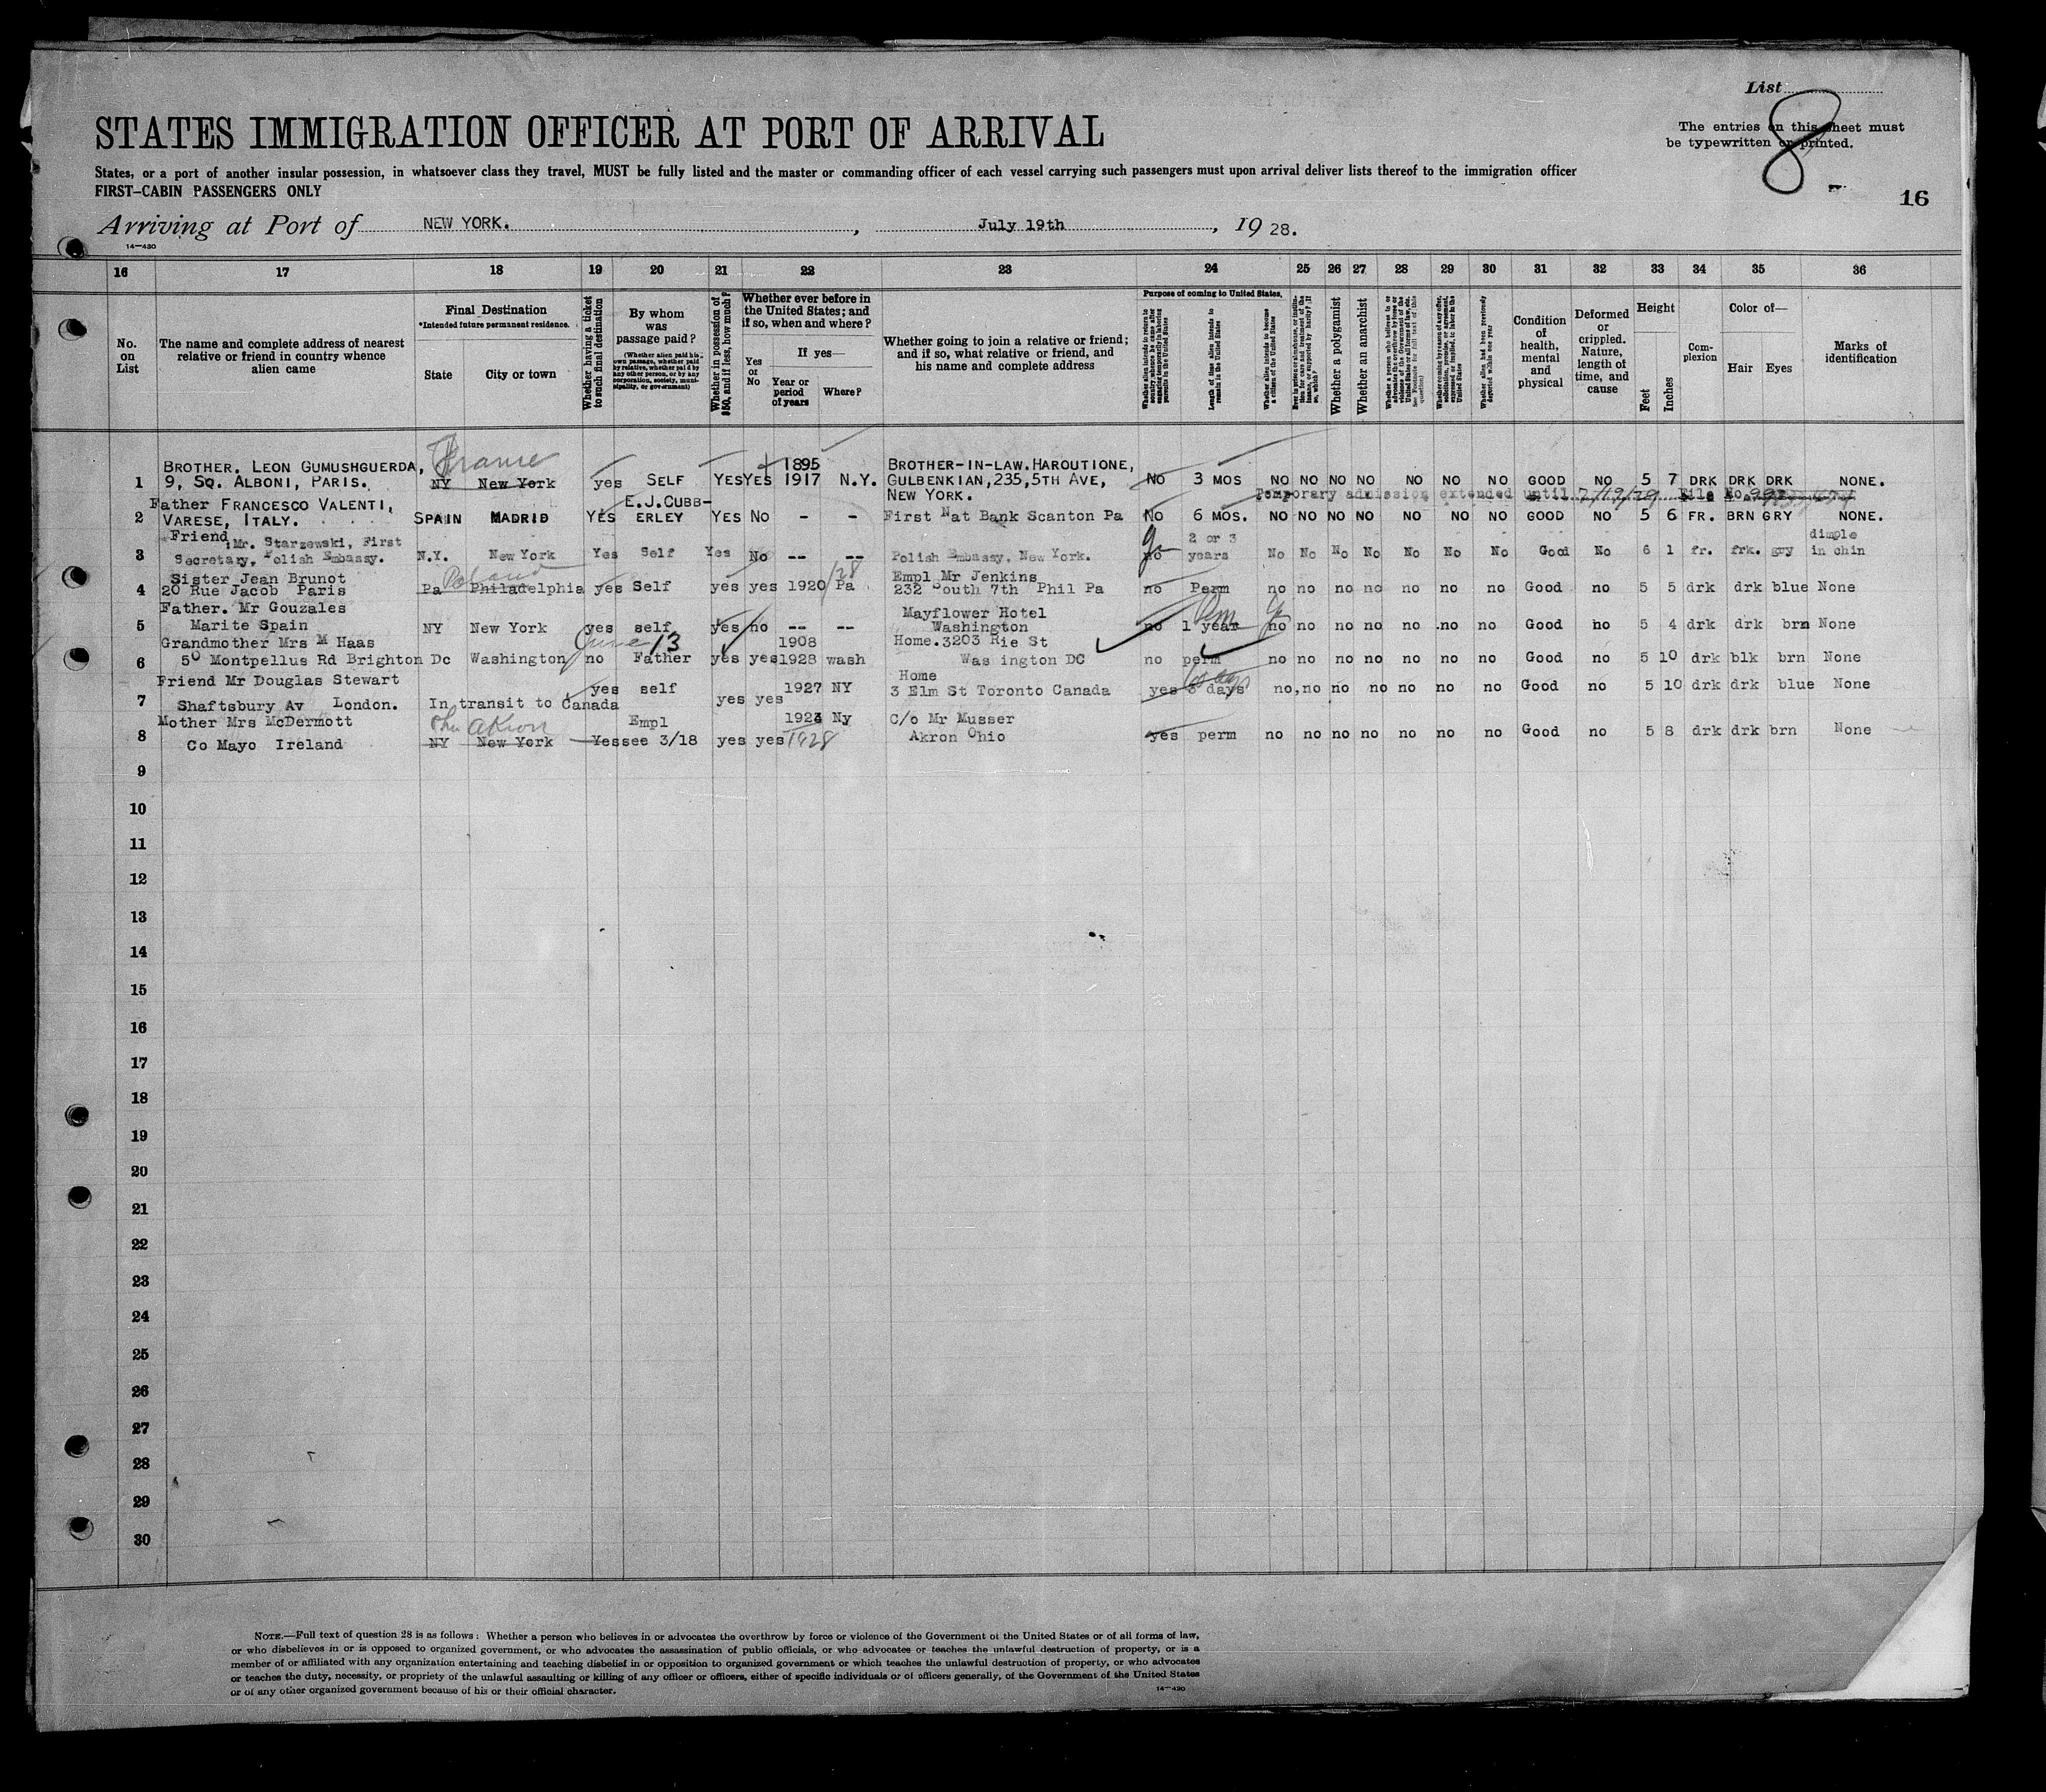 List
8
The entries on this sheet must
be typewritten or printed.
16
STATES IMMIGRATION OFFICER AT PORT OF ARRIVAL
States, or a port of another insular possession, in whatsoever class they travel, MUST be fully listed and the master or commanding officer of each vessel carrying such passengers must upon arrival deliver lists thereof to the immigration officer
FIRST-CABIN PASSENGERS ONLY
Arriving at Port of NEW YORK. , July 19th , 1928.
14-430
16 17 18 19 20 21 22 23 24 25 26 27 28 29 30 31 32 33 34 35 36
No. on List
The name and complete address of nearest relative or friend in country whence alien came
Final Destination
*Intended future permanent residence.
State City or town
Whether having a ticket to such final destination
By whom was passage paid?
(Whether alien paid his own passage, whether paid by relative, whether paid by any other person, or by any corporation, society, municipality, or government)
Whether in possession of $50, and if less, how much?
Whether ever before in the United States; and if so, when and where?
Yes or No
If yes—
Year or period of years
Where?
Whether going to join a relative or friend; and if so, what relative or friend, and his name and complete address
Purpose of coming to United States.
Length of time alien intends to remain in the United States
Whether alien intends to become a citizen of the United States
Whether a polygamist
Whether an anarchist
Condition of health, mental and physical
Deformed or crippled. Nature, length of time, and cause
Height
Feet Inches
Complexion
Color of—
Hair Eyes
Marks of identification
BROTHER. LEON GUMUSHGUERDA, France 1895 BROTHER-IN-LAW. HAROUTIONE,
1 9, SQ. ALBONI, PARIS. NY New York yes SELF YES YES 1917 N.Y. GULBENKIAN,235,5TH AVE, No 3 MOS NO NO NO NO NO NO NO GOOD NO 5 7 DRK DRK DRK NONE.
NEW YORK.
Temporary admission extended until 7/19/29 File No.
Father FRANCESCO VALENTI, E.J.CUBB-
2 VARESE, ITALY. SPAIN MADRID YES ERLEY YES No - - First Nat Bank Scanton Pa No 6 MOS. NO NO NO NO NO NO NO GOOD NO 5 6 FR. BRN GRY NONE.
Friend :Mr. Starzewski, First 2 or 3 dimple
3 Secretary, Polish Embassy. N.Y. New York Yes Self Yes No -- -- Polish Embassy, New York. no years No No No No No No No Good No 6 1 fr. frk. gry in chin
Sister Jean Brunot Poland 28 Empl Mr Jenkins
4 20 Rue Jacob Paris Pa Philadelphia yes Self yes yes 1920 Pa 232 South 7th Phil Pa no Perm no no no no no no no Good no 5 5 drk drk blue None
Father. Mr Gouzales Mayflower Hotel
5 Marite Spain NY New York yes self yes no -- -- Washington no 1 year no no no no no .no no Good no 5 4 drk drk brn None
Grandmother Mrs M Haas June 13 1908 Home.3203 Rie St
6 50 Montpellus Rd Brighton Dc Washington no Father yes yes 1928 wash Was ington DC no perm no no no no no no no Good no 5 10 drk blk brn None
Friend Mr Douglas Stewart Home
7 Shaftsbury Av London. In transit to Canada yes self yes yes 1927 NY 3 Elm St Toronto Canada yes 3 days no,no no no no no no Good no 5 10 drk drk blue None
Mother Mrs McDermott Akron Empl 1923 Ny C/o Mr Musser
8 Co Mayo Ireland NY New York Yes see 3/18 yes yes 1928 Akron Ohio yes perm no no no no no no no Good no 5 8 drk drk brn None
9
10
11
12
13
14
15
16
17
18
19
20
21
22
23
24
25
26
27
28
29
30
NOTE.—Full text of question 28 is as follows: Whether a person who believes in or advocates the overthrow by force or violence of the Government of the United States or of all forms of law,
or who disbelieves in or is opposed to organized government, or who advocates the assassination of public officials, or who advocates or teaches the unlawful destruction of property, or is a
member of or affiliated with any organization entertaining and teaching disbelief in or opposition to organized government or which teaches the unlawful destruction of property, or who advocates
or teaches the duty, necessity, or propriety of the unlawful assaulting or killing of any officer or officers, either of specific individuals or of officers generally, of the Government of the United States
or of any other organized government because of his or their official character.
14-430